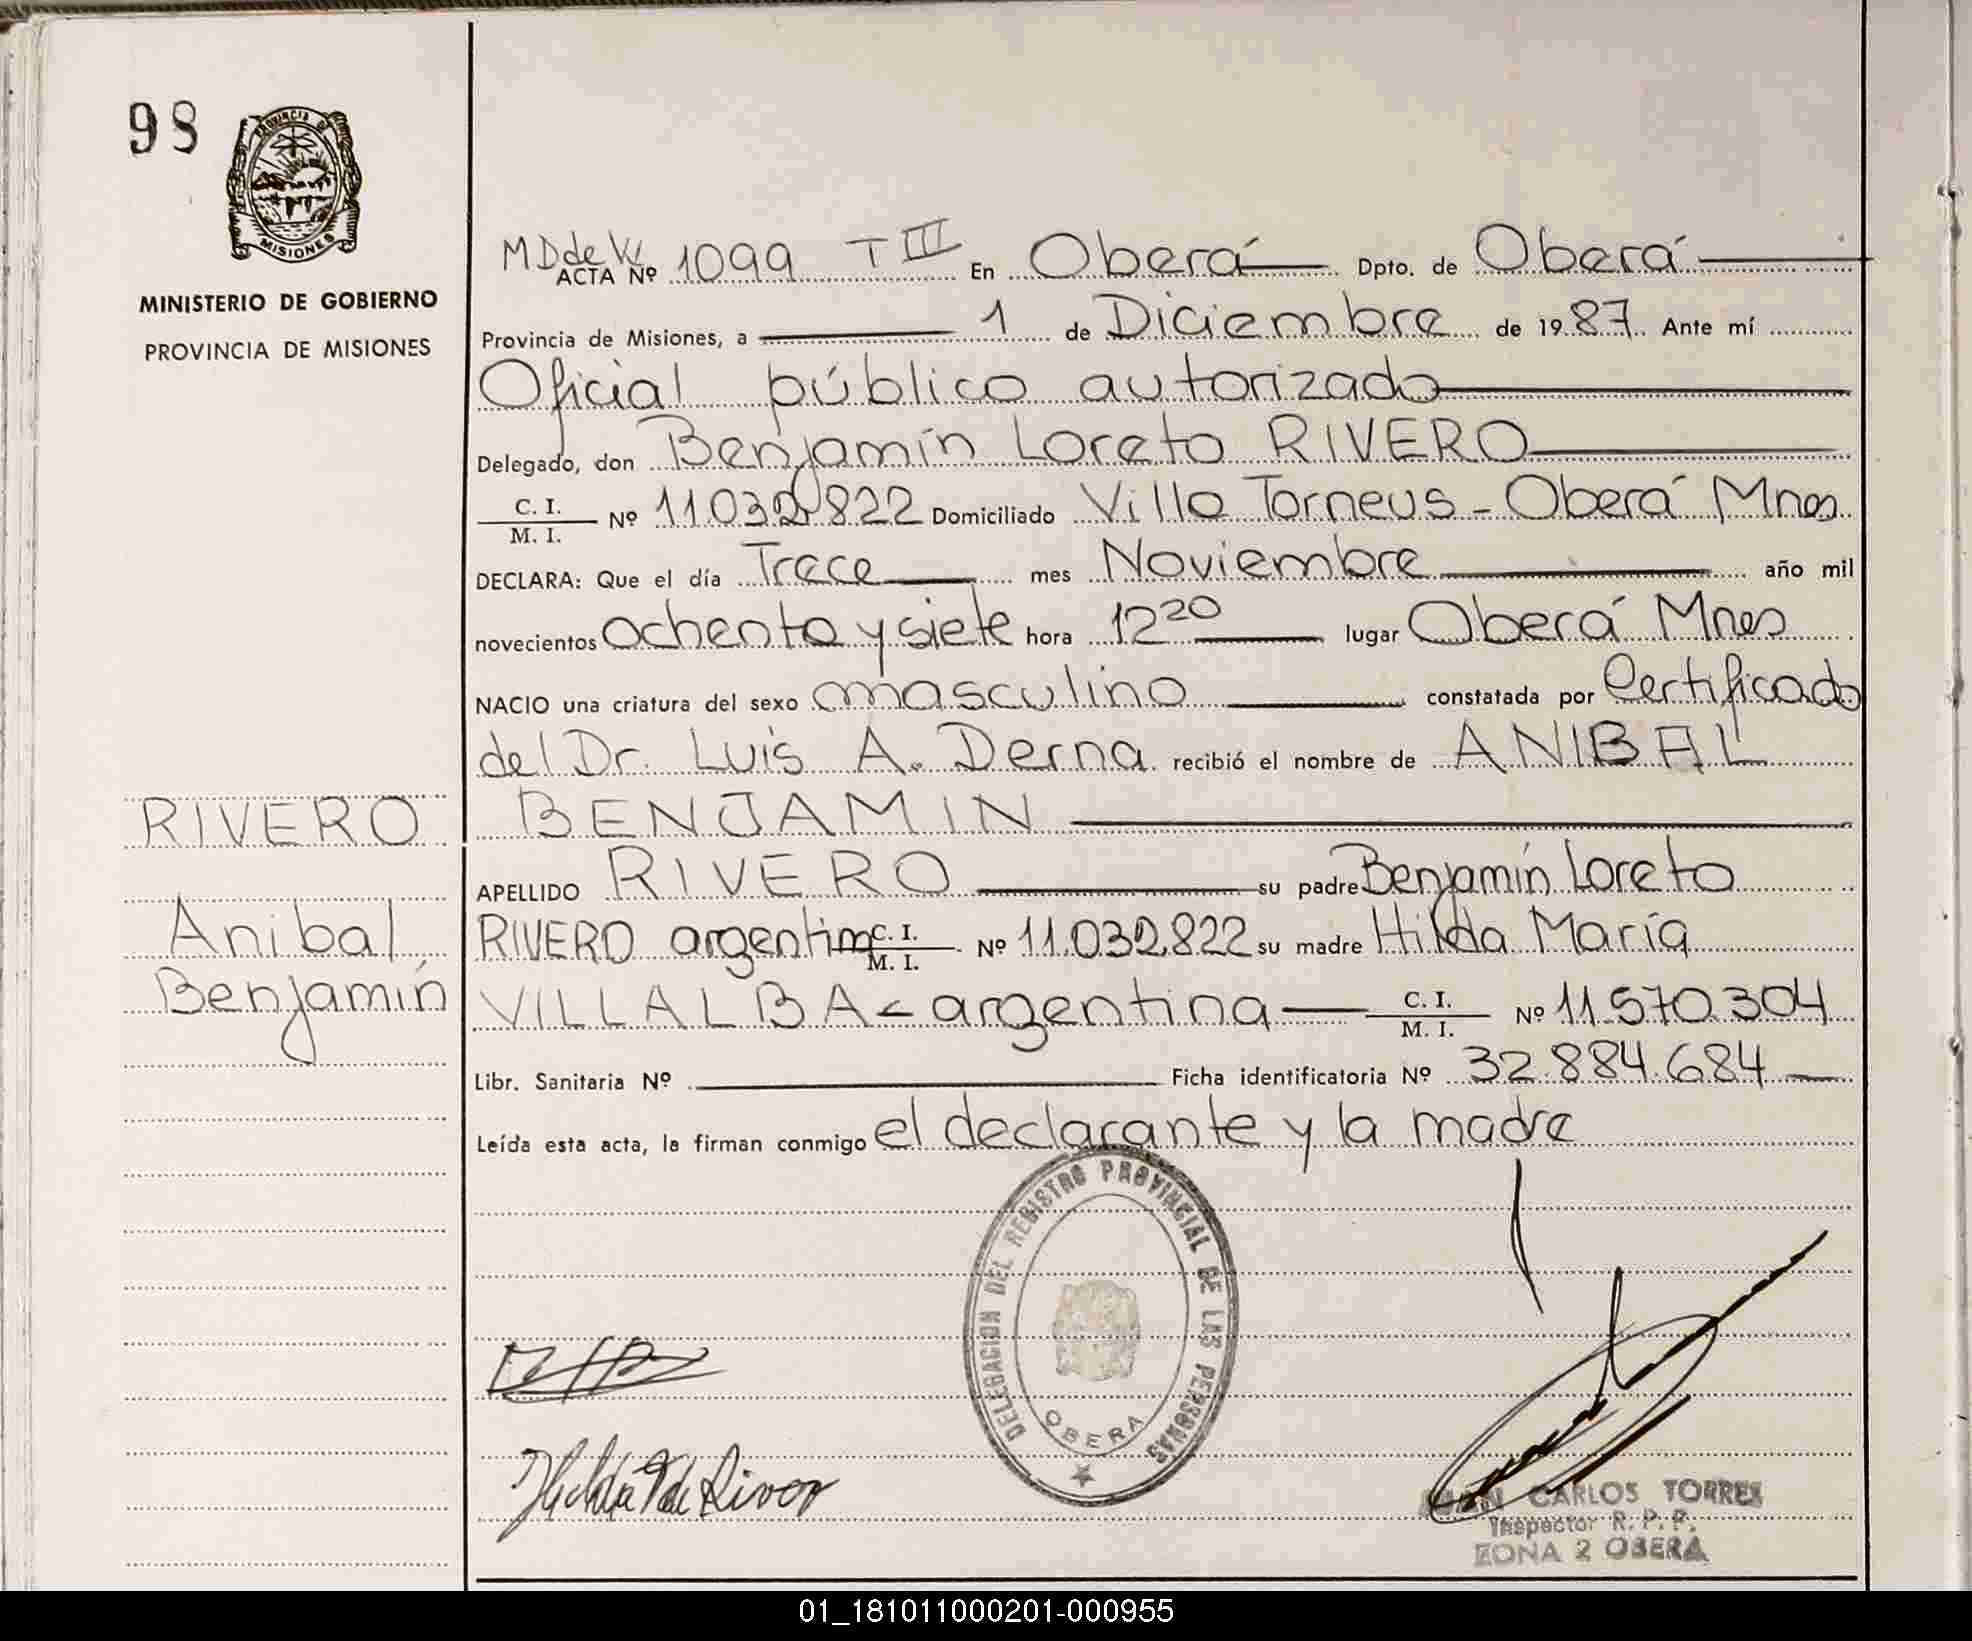 98
PROVINCIA DE
MISIONES
MINISTERIO DE GOBIERNO
PROVINCIA DE MISIONES
MDdeW
ACTA Nº 1099 T III En Oberá Dpto. de Oberá
Provincia de Misiones, a 1 de Diciembre de 1987. Ante mí
Oficial público autorizado
Delegado, don Benjamín Loreto RIVERO
C. I.
M. I. Nº 11.032.822 Domiciliado Villa Torneus - Oberá Mnes
DECLARA: Que el día Trece mes Noviembre año mil
novecientos ochenta y siete hora 12 20 lugar Oberá Mnes
NACIO una criatura del sexo masculino constatada por Certificado
del Dr. Luis A. Derna recibió el nombre de ANIBAL
BENJAMIN
RIVERO
APELLIDO RIVERO su padre Benjamín Loreto
Anibal
Benjamín
RIVERO argentino C. I. M. I. Nº 11.032.822 su madre Hilda María
VILLALBA - argentina C. I. M. I. Nº 11.570.304
Libr. Sanitaria Nº Ficha identificatoria Nº 32.884.684
Leída esta acta, la firman conmigo el declarante y la madre
DELEGACION DEL REGISTRO PROVINCIAL DE LAS PERSONAS
OBERA
JUAN CARLOS TORRES
Inspector R. P. P.
ZONA 2 OBERA
01_181011000201-000955